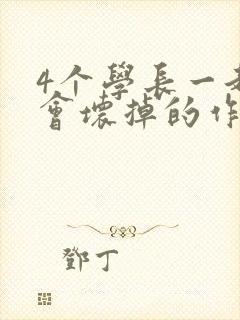 4个學長一
會壞掉的作
鄧丁